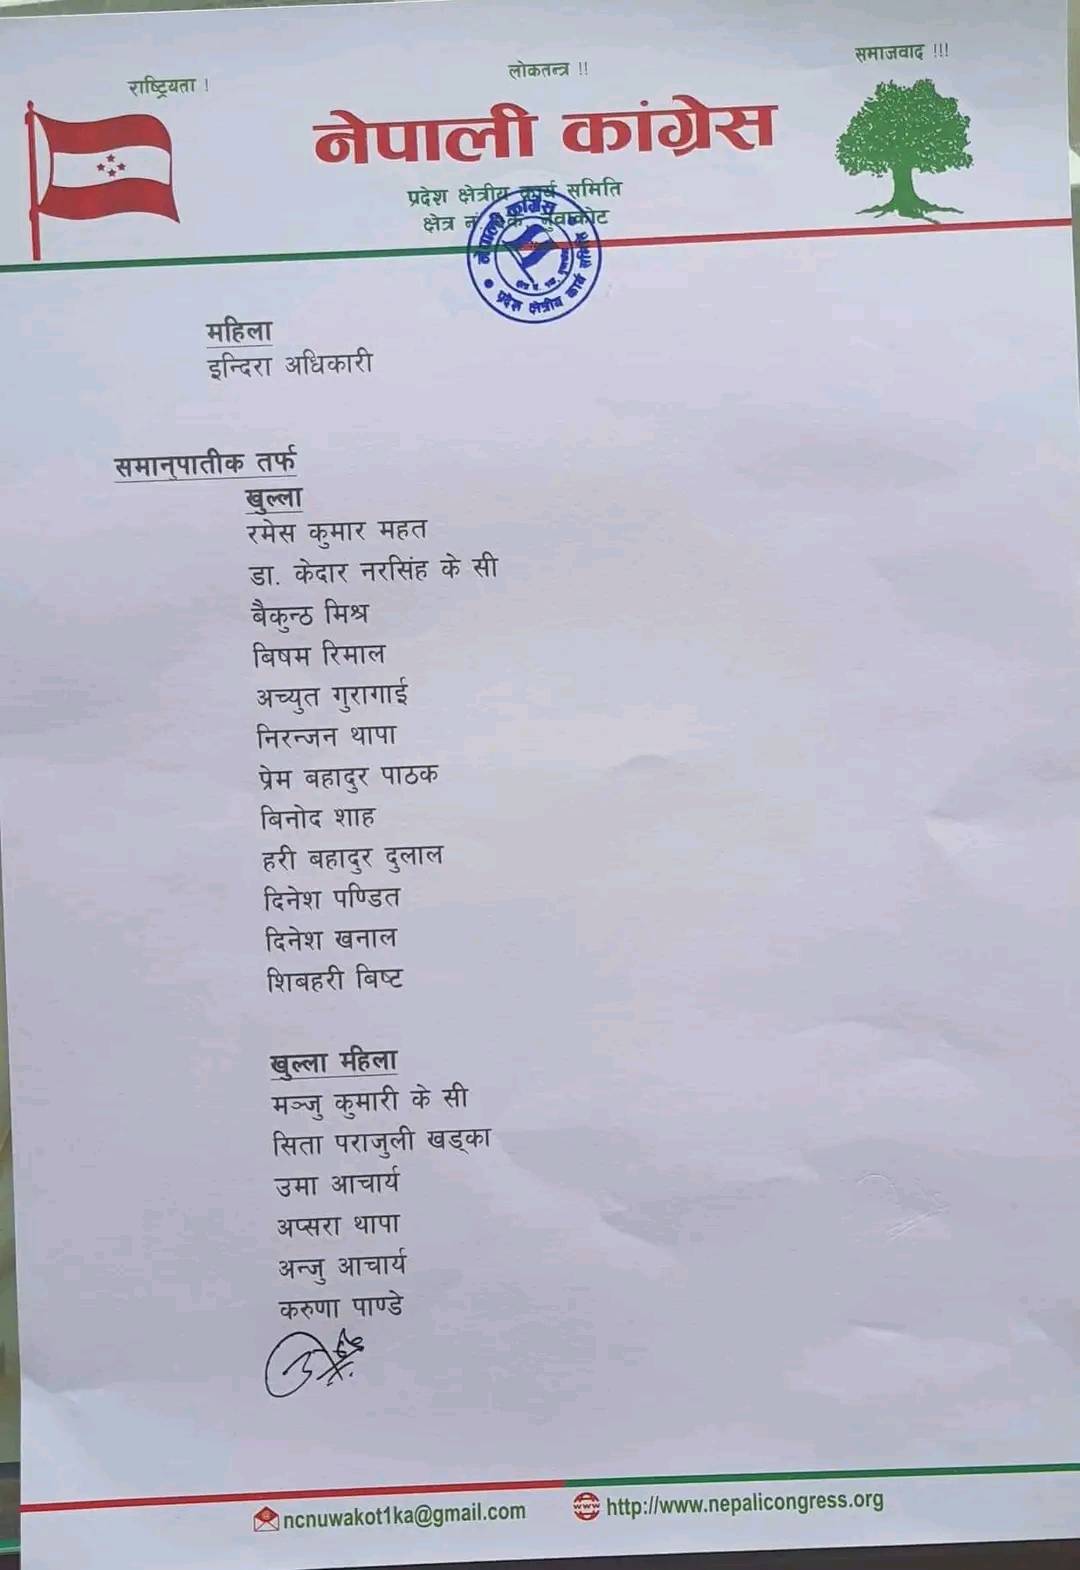 राष्ट्रियता !
लोकतन्त्र !!
समाजवाद !!!
नेपाली कांग्रेस
प्रदेश क्षेत्रीय कार्य समिति
क्षेत्र नं. नुवाकोट
नेपाली कांग्रेस
प्रदेश क्षेत्रीय कार्य समिति
महिला
इन्दिरा अधिकारी
समानुपातीक तर्फ
खुल्ला
रमेस कुमार महत
डा. केदार नरसिंह के सी
बैकुन्ठ मिश्र
बिषम रिमाल
अच्युत गुरागाई
निरन्जन थापा
प्रेम बहादुर पाठक
बिनोद शाह
हरी बहादुर दुलाल
दिनेश पण्डित
दिनेश खनाल
शिबहरी बिष्ट
खुल्ला महिला
मञ्जु कुमारी के सी
सिता पराजुली खड्का
उमा आचार्य
अप्सरा थापा
अन्जु आचार्य
करुणा पाण्डे
ncnuwakot1ka@gmail.com
www http://www.nepalicongress.org